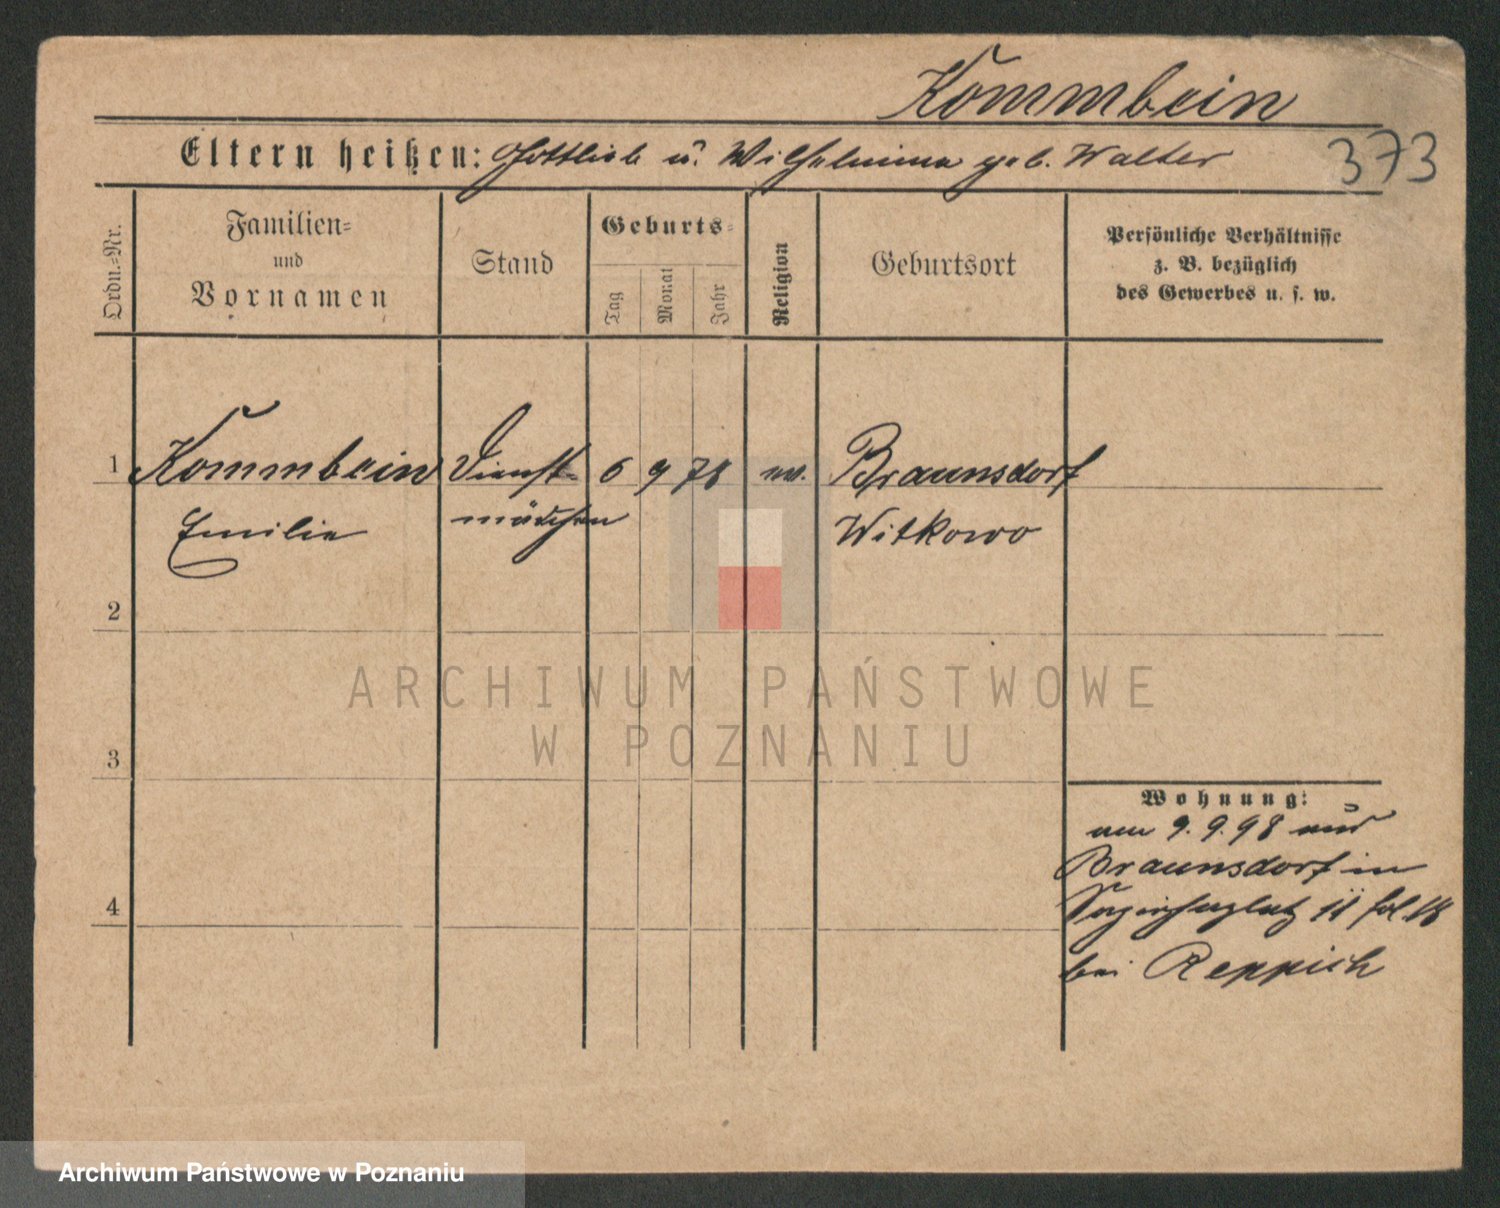 Kommbein
Eltern heißen: Gottlieb u. Wilhelmine geb. Walter
373
Ordn.-Nr.
Familien-
und
Vornamen
Stand
Geburts-
Tag
Monat
Jahr
Religion
Geburtsort
Persönliche Verhältnisse
z. B. bezüglich
des Gewerbes u. s. w.
1 Kommbein Dienst- 6 9 78 ev. Braunsdorf
Emilie mädchen Witkowo
2
ARCHIWUM PAŃSTWOWE
W POZNANIU
3
Wohnung:
am 9. 9. 98 aus
Braunsdorf in
11 fol. 18
4
bei Reppich
Archiwum Państwowe w Poznaniu